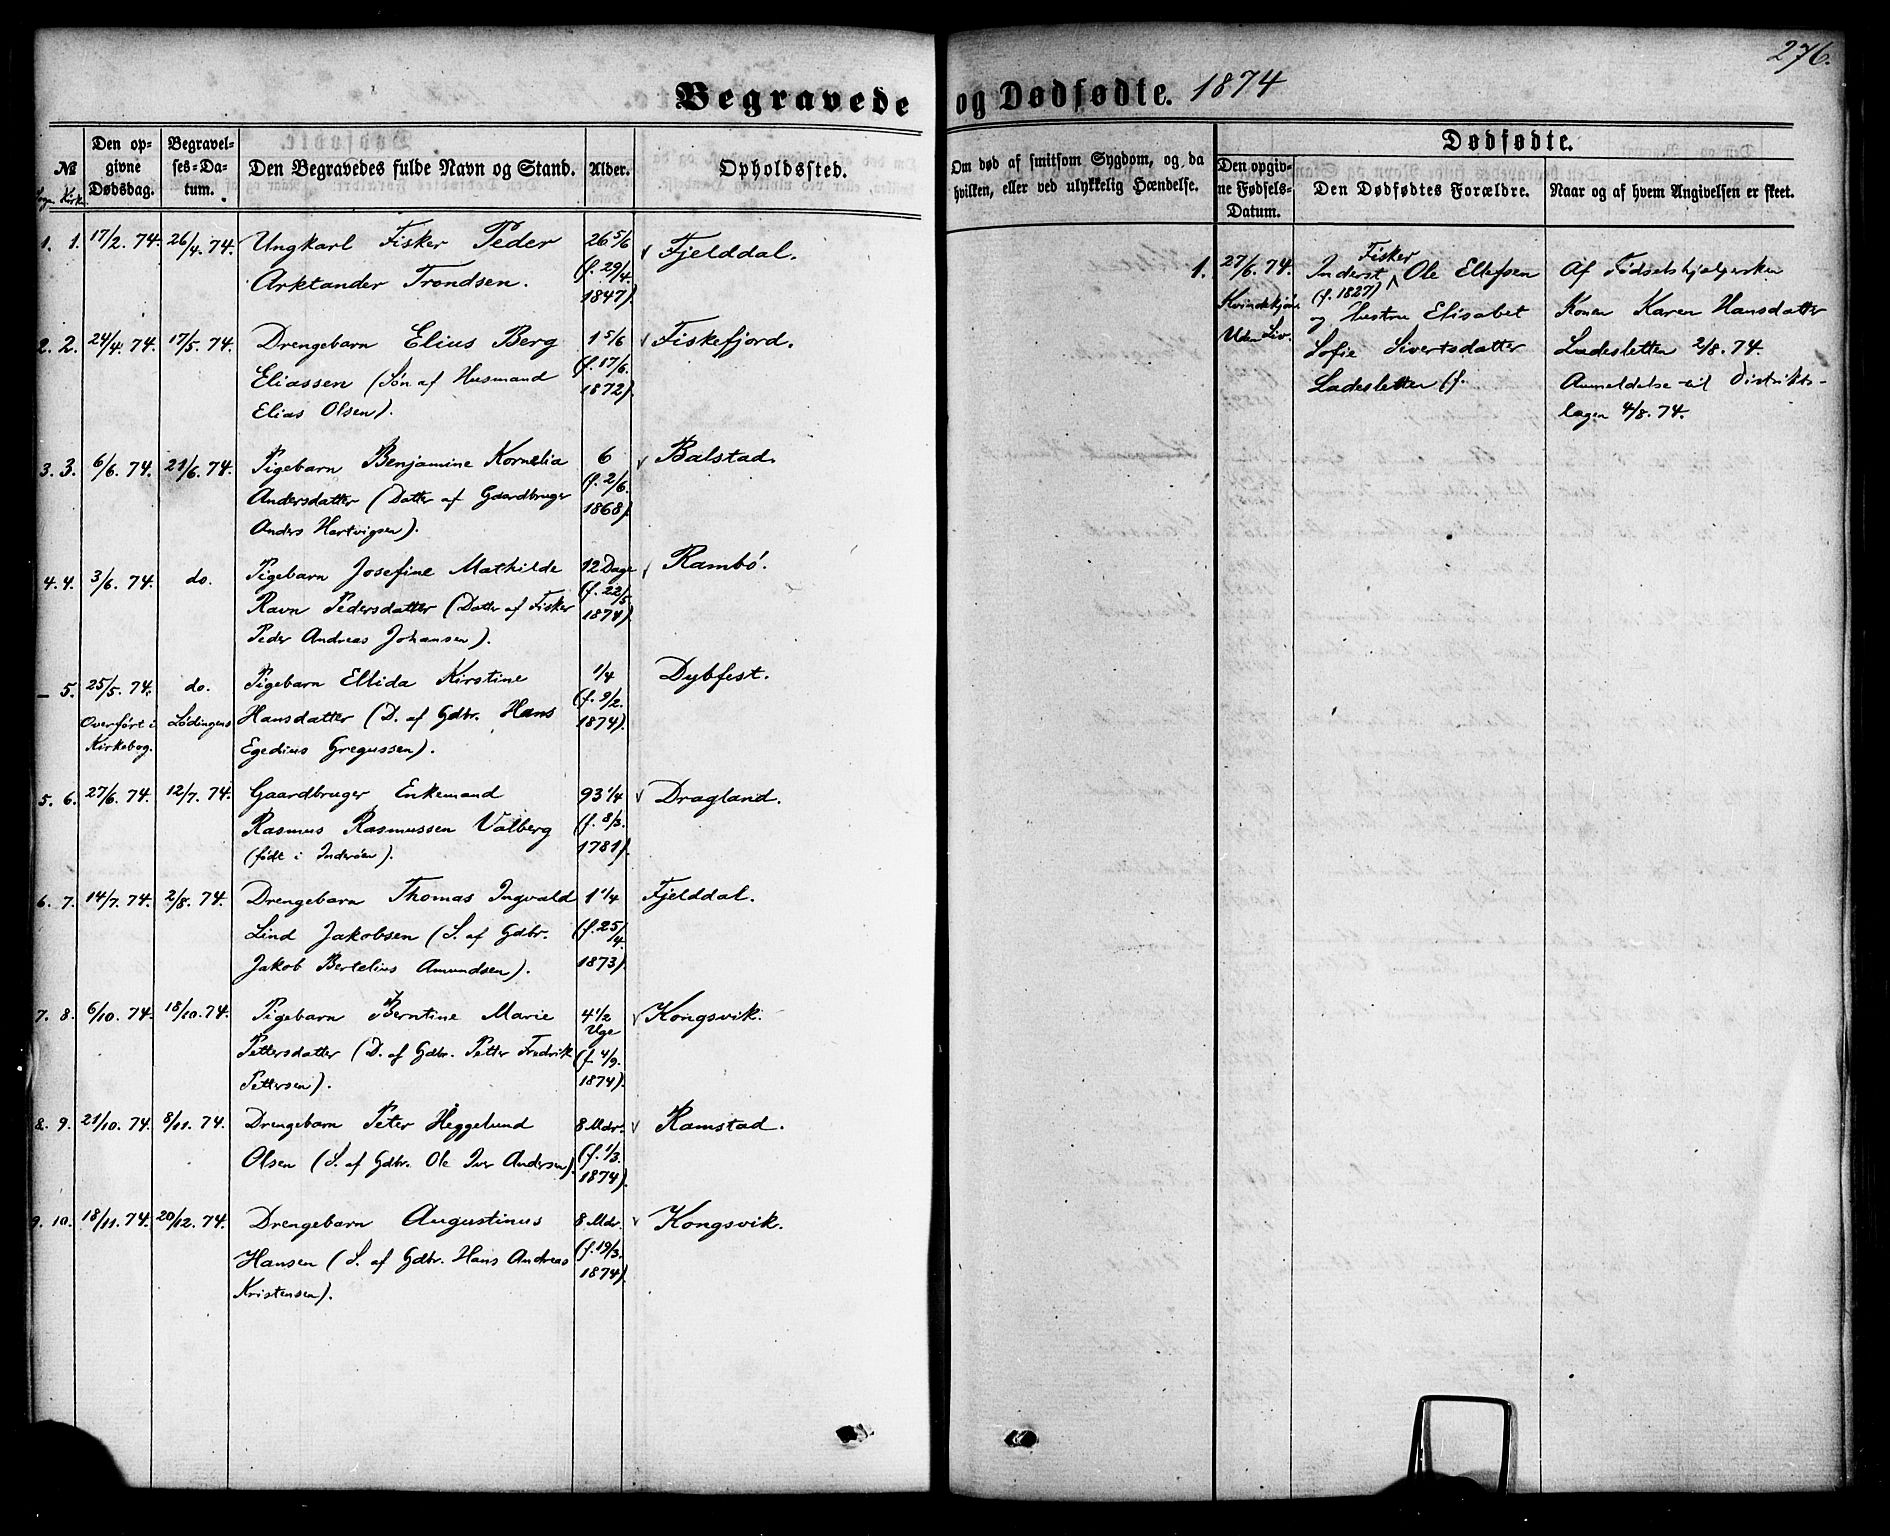 276.
Begravede og Dødfødte. 1874
№
Sogn Kirk.
Den opgivne Dødsdag.
Begravelses-Datum.
Den Begravedes fulde Navn og Stand.
Alder.
Opholdssted.
Om død af smitsom Sygdom, og da hvilken, eller ved ulykkelig Hændelse.
Dødfødte.
Den opgivne Fødsels-Datum.
Den Dødfødtes Forældre.
Naar og af hvem Angivelsen er skeet.
1. 1. 17/2. 74. 26/4. 74. Ungkarl Fisker Peder 26 5/6 Fjelddal.
Arktander Trondsen. (f. 29/4. 1847).
2. 2. 24/4. 74. 17/5. 74. Drengebarn Elius Berg 1 5/6 Fiskefjord.
Eliassen (Søn af Husmand (f. 17/6.
Elias Olsen). 1872).
3. 3. 6/6. 74. 21/6. 74. Pigebarn Benjamine Kornelia 6 Balstad.
Andersdatter (Datter af Gaardbruger (f. 2/6.
Anders Hartvigsen). 1868).
4. 4. 3/6. 74. do. Pigebarn Josefine Mathilde 12 Dage Rambø.
Ravn Pedersdatter (Datter af Fisker (f. 22/5
Peder Andreas Johansen). 1874).
– 5. 25/5. 74. do. Pigebarn Ellida Kirstine 1/4 Dybfest.
Overført i Lødingens Hansdatter (D. af Gdbr. Hans (f. 9/2.
Kirkebog. Egedius Gregussen). 1874).
5. 6. 27/6. 74. 12/7. 74. Gaardbruger Enkemand 93 1/4 Dragland.
Rasmus Rasmussen Valberg (f. 8/3.
(født i Inderøen). 1781).
6. 7. 14/7. 74. 2/8. 74. Drengebarn Thomas Ingvald 1 1/4 Fjelddal.
Lind Jakobsen (S. af Gdbr. (f. 25/4.
Jakob Bertelius Amundsen). 1873).
7. 8. 6/10. 74. 18/10. 74. Pigebarn Berntine Marie 4 1/2 Uge Kongsvik.
Pettersdatter (D. af Gdbr. Petter Fredrik (f. 4/9.
Pettersen). 1874).
8. 9. 21/10. 74. 8/11. 74. Drengebarn Peter Heggelund 8 Mdr. Ramstad.
Olsen (S. af Gdbr. Ole Iver Andersen). (f. 1/3. 1874).
9. 10. 18/11. 74. 20/12. 74. Drengebarn Augustinus 8 Mdr. Kongsvik.
Hansen (S. af Gdbr. Hans Andreas (f. 19/3.
Kristensen). 1874).
1. 27/6. 74.
Kvindekjøn.
Uden Liv.
Fisker
Inderst Ole Ellefsen
(f. 1827)
og Hustru Elisabet
Sofie Sivertsdatter
Ladesletten (f.
Af Fødselshjælpersken
Konen Karen Hansdatter
Ladesletten 2/8. 74.
Anmeldelse til Distrikts-
lægen 4/8. 74.